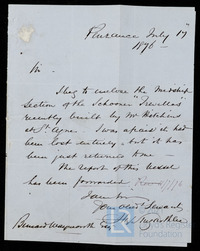 Penzance July 17
1876
Sir
I beg to enclose the Midship
Section of the Schooner
recently built by Mr Hitchens
at St Agnes. I was afraid it had
been lost entirely - but it has
been just returned to me -
The report of this Vessel
has been forwarded
I am Sir
Your Obedt Servant
Bernard Waymouth Esq